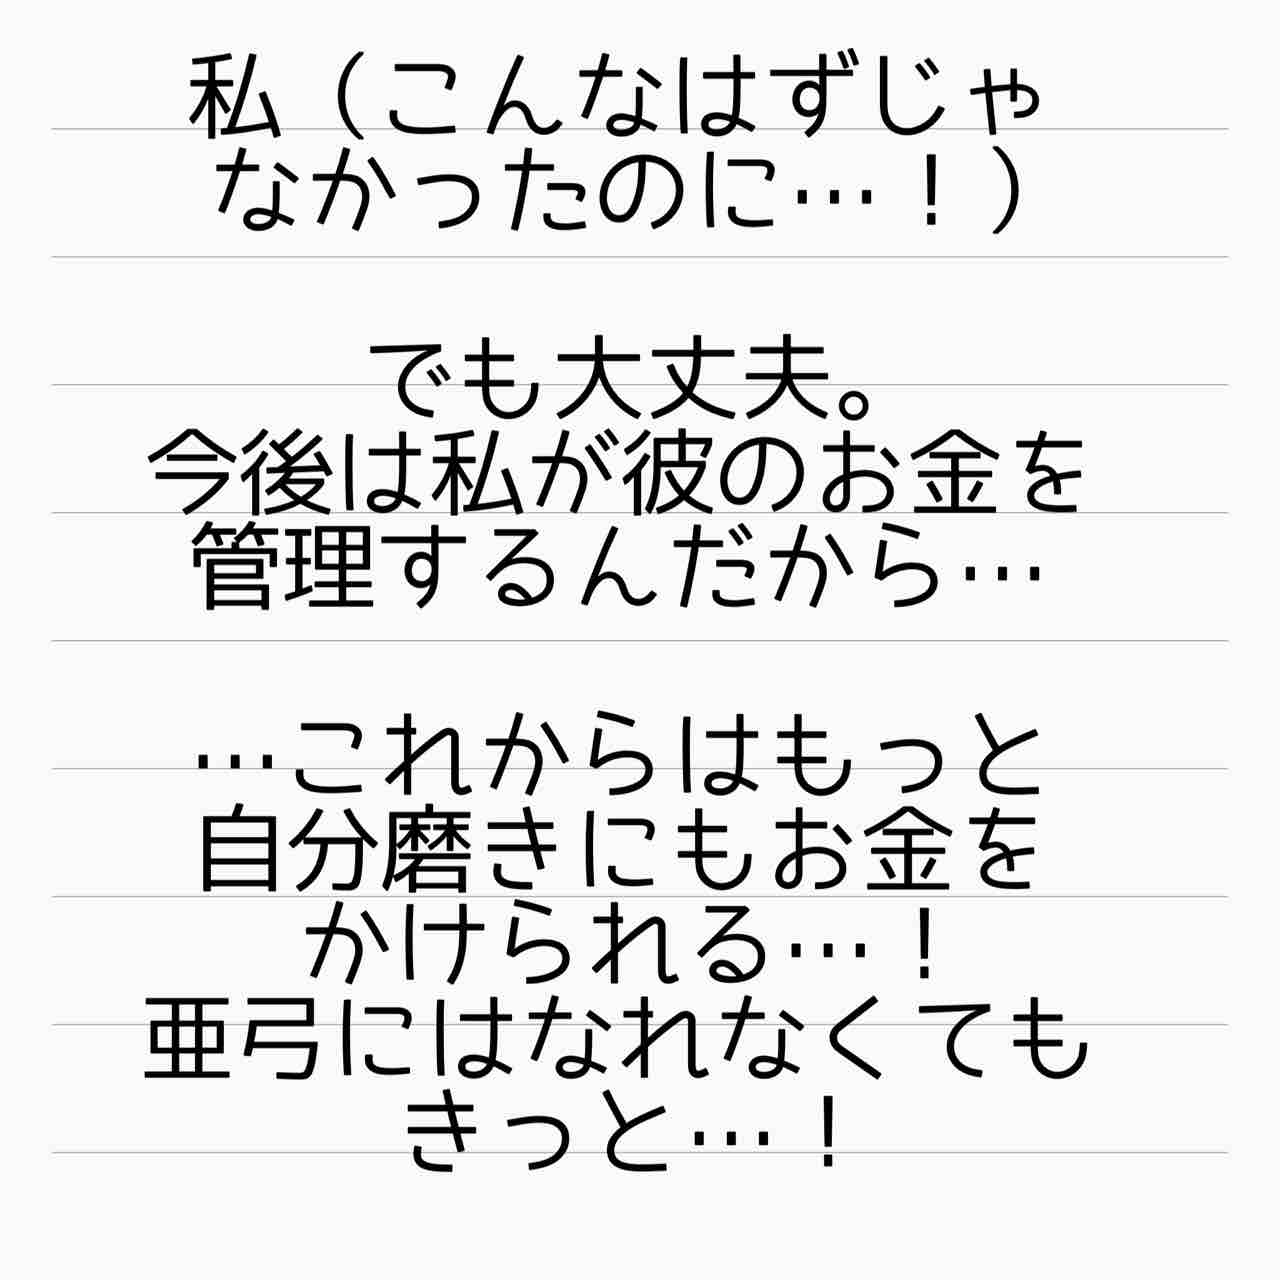 私（こんなはずじゃ
なかったのに…！）
でも大丈夫。
今後は私が彼のお金を
管理するんだから…
…これからはもっと
自分磨きにもお金を
かけられる…！
亜弓にはなれなくても
きっと…！